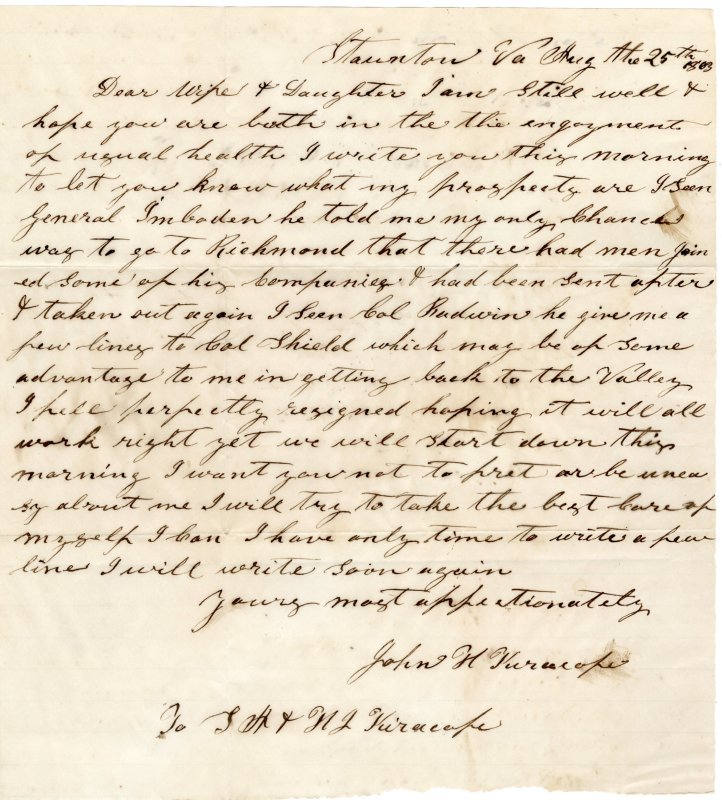 Staunton Va Aug the 25th 1863
Dear Wife & Daughter I am still well &
hope you are both in the the engoyment
of usual health I write you this morning
to let you know what my prospects are I seen
General Imboden he told me my only Chance
was to go to Richmond that there had men join
ed some of his Companies & had been sent after
& taken out again I seen Col Badwin he give me a
few lines to Col Shield which may be of some
advantage to me in getting back to the Valley
I fell perfectly resigned hoping it will all
work right yet we will start down this
morning I want you not to fret or be unea
sy about me I will try to take the best Care of
myself I Can I have only time to write a few
line I will write soon again
Yours most affectionately
John H Kuracofe
To S A & N J Kiracofe